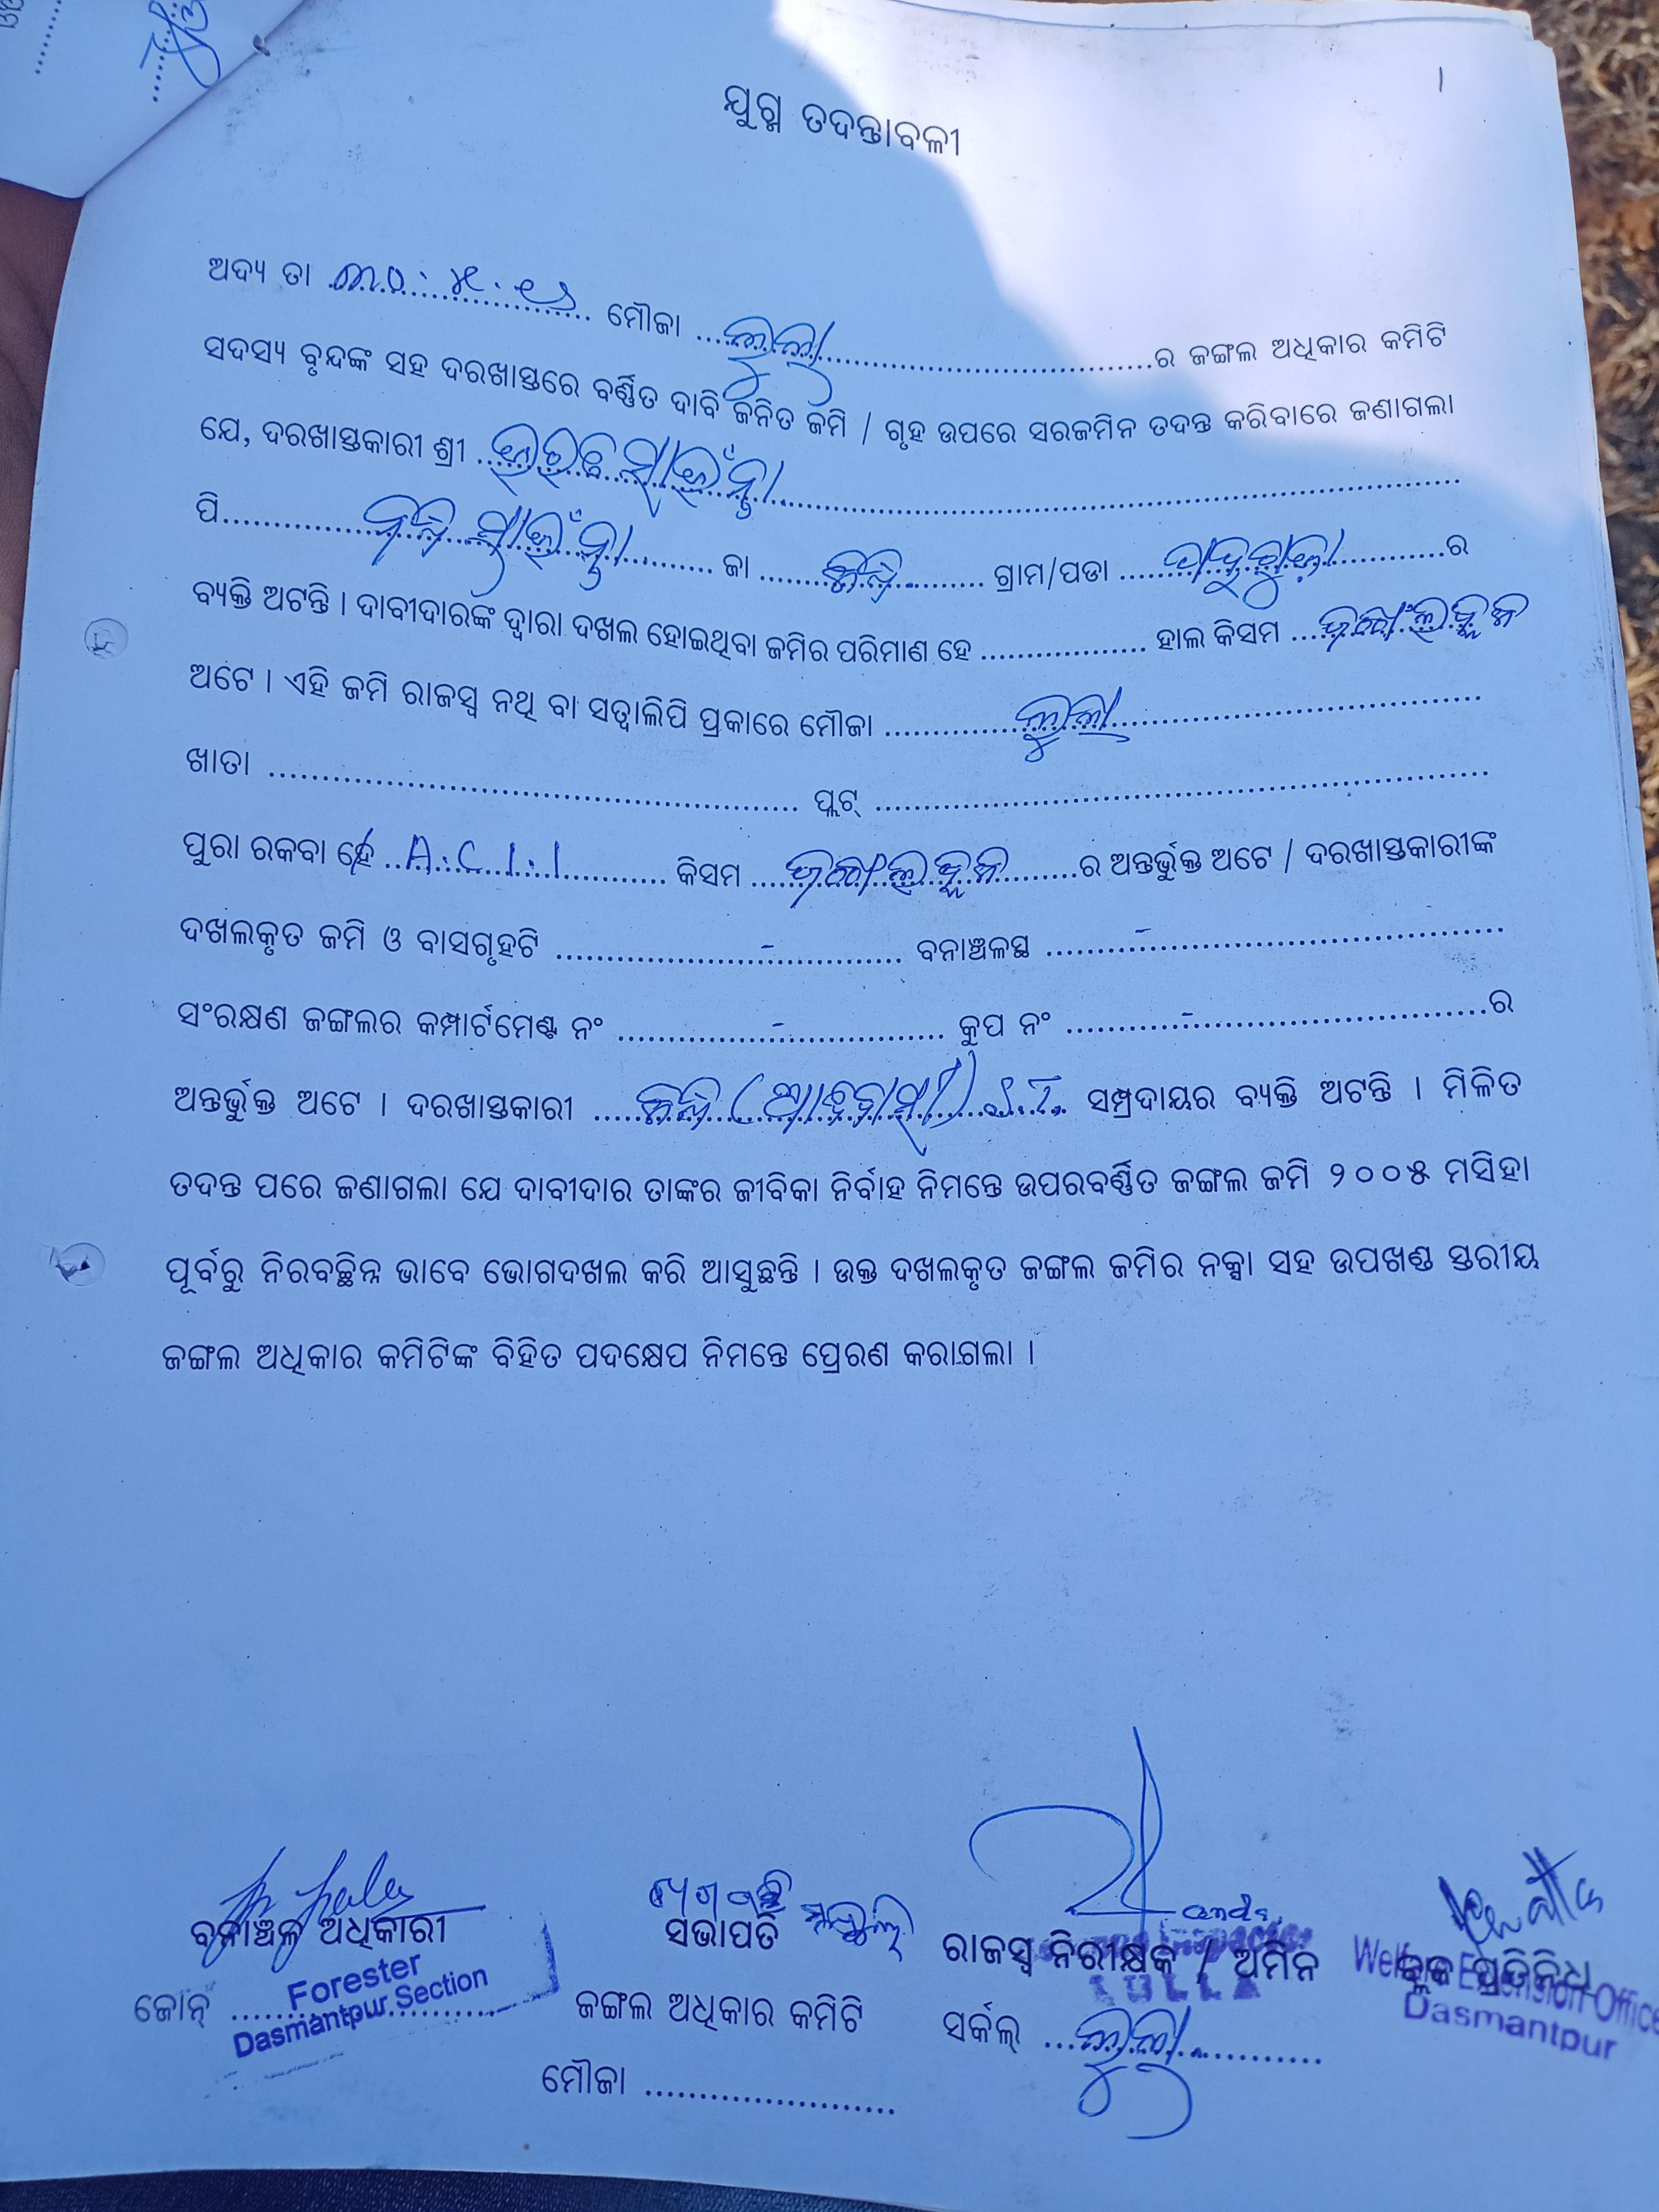 ଯୁଗ୍ମ ତଦନ୍ତାବଳୀ
ଅଦ୍ୟ ତା ........................... ମୌଜା ... ଲୁଲା ...........................ର ଜଙ୍ଗଲ ଅଧିକାର କମିଟି
ସଦସ୍ୟ ବୃନ୍ଦଙ୍କ ସହ ଦରଖାସ୍ତରେ ବର୍ଣ୍ଣିତ ଦାବି ଜନିତ ଜମି / ଗୃହ ଉପରେ ସରଜମିନ ତଦନ୍ତ କରିବାରେ ଜଣାଗଲା
ଯେ, ଦରଖାସ୍ତକାରୀ ଶ୍ରୀ ...........................
ପି........................... ଜା ........................... ଗ୍ରାମ/ପଡା ...........................ର
ବ୍ୟକ୍ତି ଅଟନ୍ତି । ଦାବୀଦାରଙ୍କ ଦ୍ୱାରା ଦଖଲ ହୋଇଥିବା ଜମିର ପରିମାଣ ହେ ................. ହାଲ କିସମ ...
ଅଟେ । ଏହି ଜମି ରାଜସ୍ୱ ନଥି ବା ସତ୍ୱାଲିପି ପ୍ରକାରେ ମୌଜା ............. ଲୁଲା ...........................
ଖାତା ........................... ପ୍ଲଟ୍ ...........................
ପୁରା ରକବା ହେ ... A.C 1.1 ........... କିସମ ...........................ର ଅନ୍ତର୍ଭୁକ୍ତ ଅଟେ / ଦରଖାସ୍ତକାରୀଙ୍କ
ଦଖଲକୃତ ଜମି ଓ ବାସଗୃହଟି .............-............. ବନାଞ୍ଚଳସ୍ଥ .............-.............
ସଂରକ୍ଷଣ ଜଙ୍ଗଲର କମ୍ପାର୍ଟମେଣ୍ଟ ନଂ .............-............. କୁପ ନଂ .............-.............ର
ଅନ୍ତର୍ଭୁକ୍ତ ଅଟେ । ଦରଖାସ୍ତକାରୀ ...... (ଆଦିବାସୀ) S.T. ସମ୍ପ୍ରଦାୟର ବ୍ୟକ୍ତି ଅଟନ୍ତି । ମିଳିତ
ତଦନ୍ତ ପରେ ଜଣାଗଲା ଯେ ଦାବୀଦାର ତାଙ୍କର ଜୀବିକା ନିର୍ବାହ ନିମନ୍ତେ ଉପରବର୍ଣ୍ଣିତ ଜଙ୍ଗଲ ଜମି ୨୦୦୫ ମସିହା
ପୂର୍ବରୁ ନିରବଚ୍ଛିନ୍ନ ଭାବେ ଭୋଗଦଖଲ କରି ଆସୁଛନ୍ତି । ଉକ୍ତ ଦଖଲକୃତ ଜଙ୍ଗଲ ଜମିର ନକ୍ସା ସହ ଉପଖଣ୍ଡ ସ୍ତରୀୟ
ଜଙ୍ଗଲ ଅଧିକାର କମିଟିଙ୍କ ବିହିତ ପଦକ୍ଷେପ ନିମନ୍ତେ ପ୍ରେରଣ କରାଗଲା ।
ବନାଞ୍ଚଳ ଅଧିକାରୀ
ଜୋନ୍ ...........................
Forester
Dasmantpur Section
ସଭାପତି
ଜଙ୍ଗଲ ଅଧିକାର କମିଟି
ମୌଜା ...........................
ରାଜସ୍ୱ ନିରୀକ୍ଷକ / ଅମିନ
LULLA
ସର୍କଲ୍ ... ଲୁଲା ...........
ବ୍ଲକ ପ୍ରତିନିଧି
Welfare Extension Office
Dasmantpur